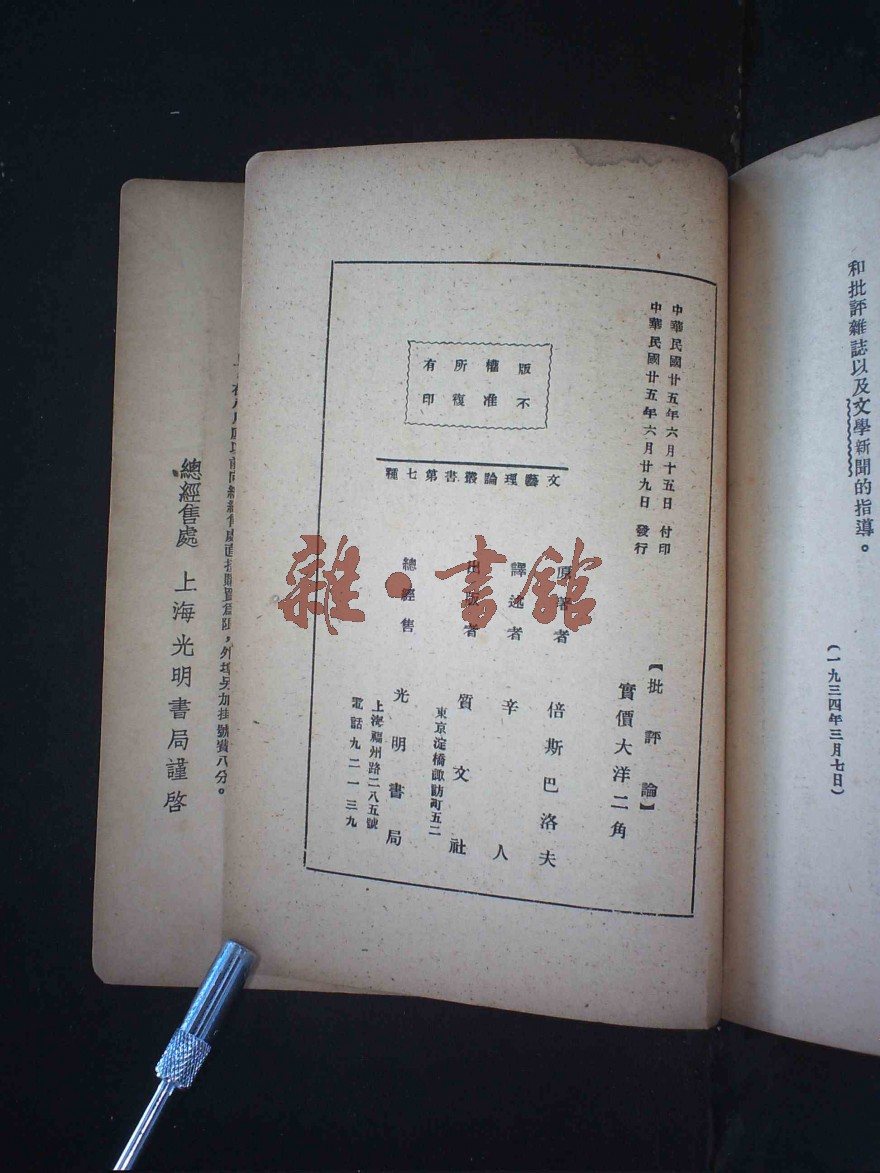 和批評雜誌以及文學新聞的指導。
(一九三四年三月七日)
中華民國廿五年六月十五日 付印
中華民國廿五年六月廿九日 發行
【批評論】
實價大洋二角
原著者 倍斯巴洛夫
譯述者 辛人
出版者 質文社
東京淀橋諏訪町五二
總經售 光明書局
上海福州路二八五號
電話九二一三九
版權所有
不准復印
文藝理論叢書第七種
雜·書館
向總經售處直接購買為限,外埠另加掛號費八分。
總經售處 上海光明書局謹啓